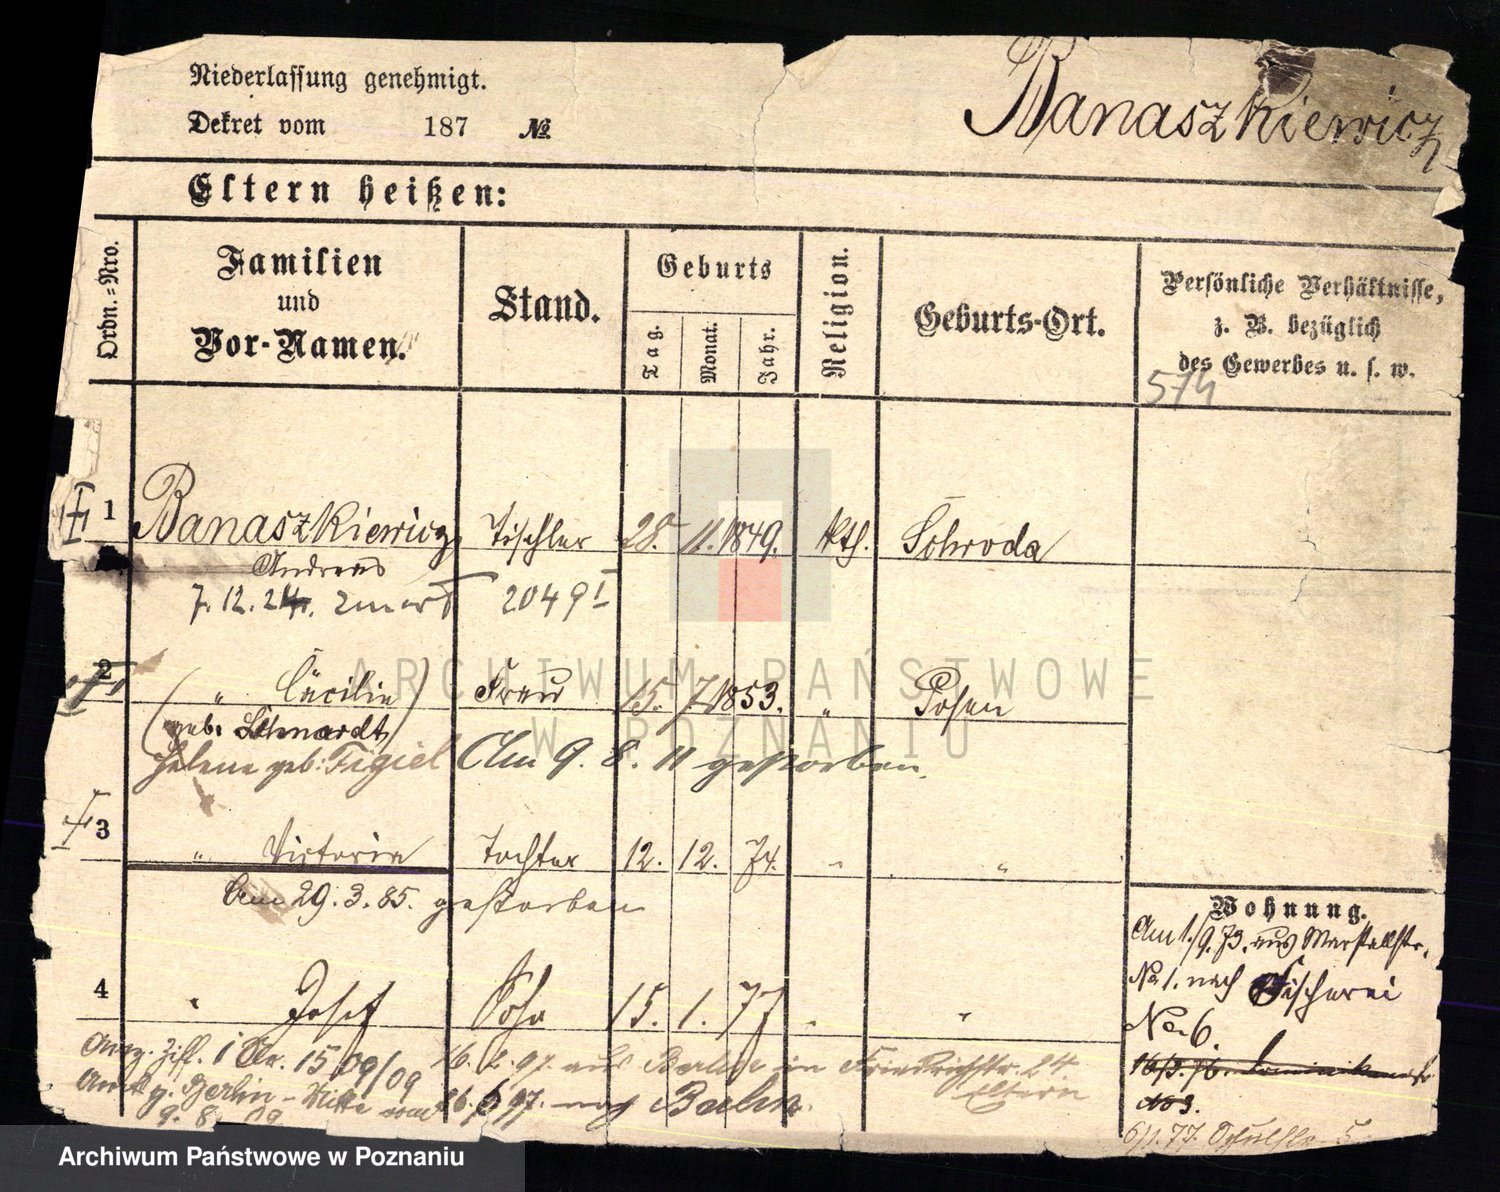 Niederlassung genehmigt.
Dekret vom 187 №
Banaszkiewicz
Eltern heißen:
Ordn.=Nro.
Familien
und
Vor-Namen.
Stand.
Geburts
Tag.
Monat.
Jahr.
Religion.
Geburts-Ort.
Persönliche Verhältnisse,
z. B. bezüglich
des Gewerbes u. s. w.
574
1 Banaszkiewicz Tischler 28. 11. 1849. kth. Schroda
Andreas
7. 12. 24. zmarł 2049 I
2 " Cäcilie) Frau 15. 7. 1853. " Posen
(geb. Lehnardt)
Helene geb: Figiel Am 9. 8. 11 gestorben.
3 " Victoria Tochter 12. 12. 74. " "
Am 29. 3. 85. gestorben
Wohnung.
Am 1./9. 73. aus Marstallstr.
No 1. nach Fischerei
No 6.
16/3. 76. Dominikanerstr
No 3.
6/1. 77. Schulstr 5
4 " Josef Sohn 15. 1. 77 " "
Anz. Ziff. 1 Nr. 1509/09
16. 2. 97. aus Berlin in Friedrichstr. 24
Eltern
Berlin-Mitte vom
9. 8. 09
26. 6. 97. nach Berlin.
ARCHIWUM PAŃSTWOWE
W POZNANIU
Archiwum Państwowe w Poznaniu